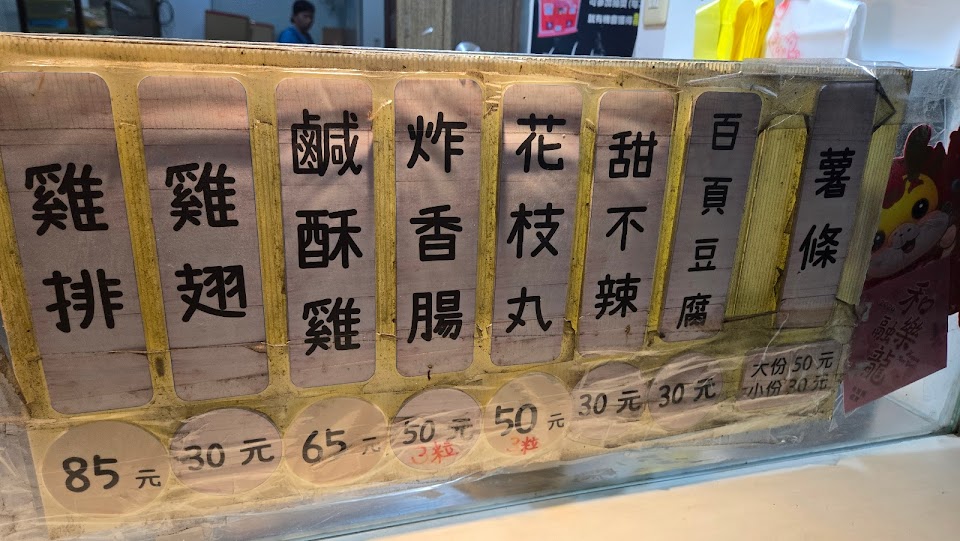 雞排
雞翅
鹹酥雞
炸香腸
花枝丸
甜不辣
百頁豆腐
薯條
85元
30元
65元
50元
50元
30元
30元
大份50元
小份30元
和樂融龍